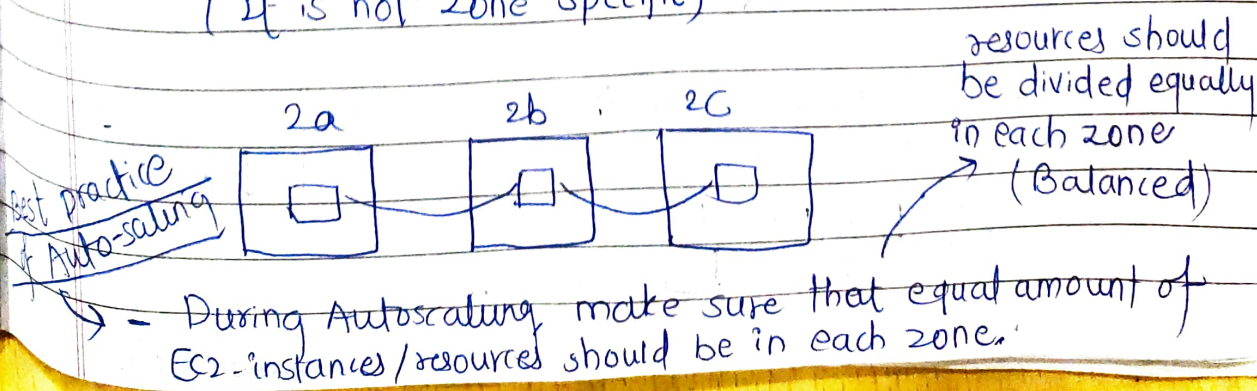 (It is not zone specific)
resources should
be divided equally
in each zone
(Balanced)
2a 2b 2c
Best practice
of Auto-saling
- During Autoscaling make sure that equal amount of
EC2-instances/resources should be in each zone.